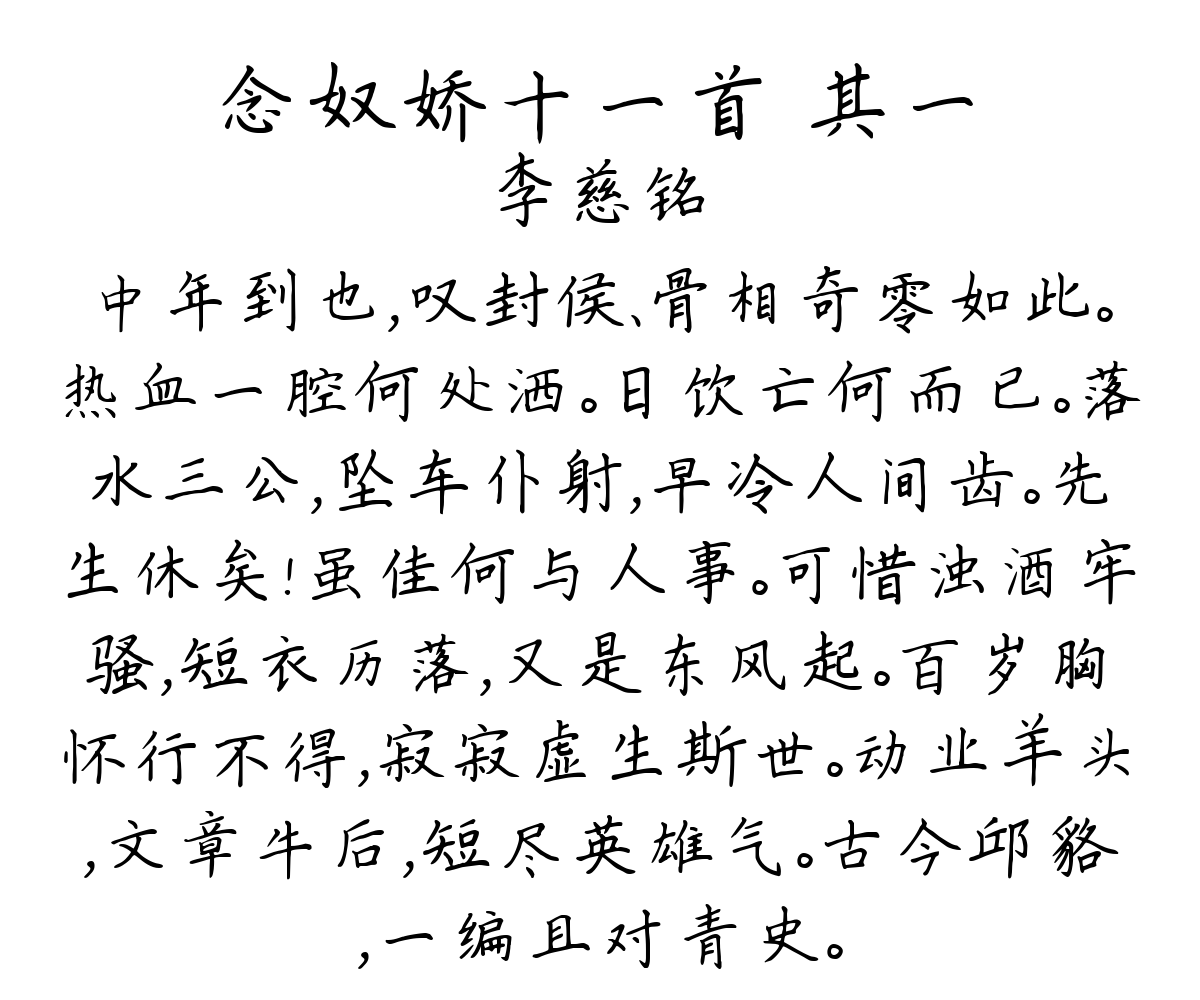 念奴娇十一首 其一
李慈铭
中年到也,叹封侯、骨相奇零如此。
热血一腔何处洒。日饮亡何而已。落
水三公,坠车仆射,早冷人间齿。先
生休矣!虽佳何与人事。可惜浊酒牢
骚,短衣历落,又是东风起。百岁胸
怀行不得,寂寂虚生斯世。动业羊头
,文章牛后,短尽英雄气。古今邱貉
,一编且对青史。